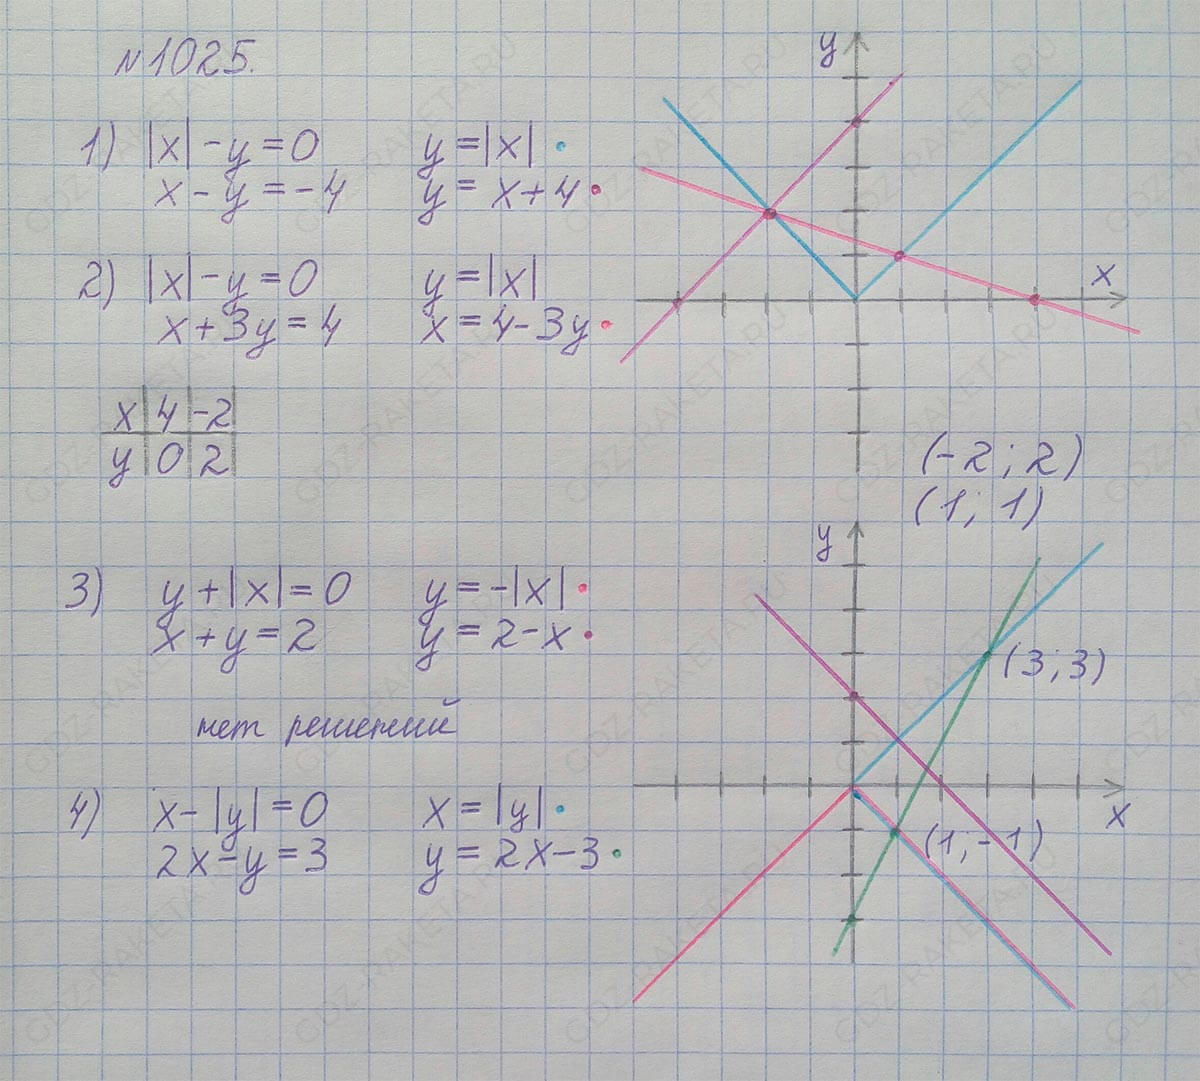 N1025.
1) |x| - y = 0    y = |x|
x - y = -4    y = x + 4
2) |x| - y = 0    y = |x|
x + 3y = 4    x = 4 - 3y
x | 4 | -2
y | 0 | 2
y
x
(-2; 2)
(1; 1)
3) y + |x| = 0    y = -|x|
x + y = 2    y = 2 - x
нет решений
4) x - |y| = 0    x = |y|
2x - y = 3    y = 2x - 3
y
(3; 3)
x
(1; -1)
GDZ-RAKETA.RU